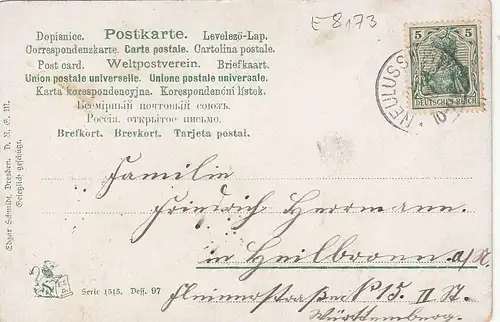 E 8173
Dopisnice. Postkarte. Levelező-Lap.
Correspondenzkarte. Carte postale. Cartolina postale.
Post card. Weltpostverein. Briefkaart.
Union postale universelle. Unione postale universale.
Karta korespondencyjna. Korespondenční lístek.
Всемірный почтовый союзъ.
Россія. открытое письмо.
Brefkort. Brevkort. Tarjeta postal.
5 5
DEUTSCHES REICH
NEULUSS
Edgar Schmidt, Dresden. D. N. E. III.
Gesetzlich geschützt.
Familie
Friedrich Herrmann.
in Heilbronn a/N.
Serie 1515. Dess. 97
No 15. II St.
Württemberg.